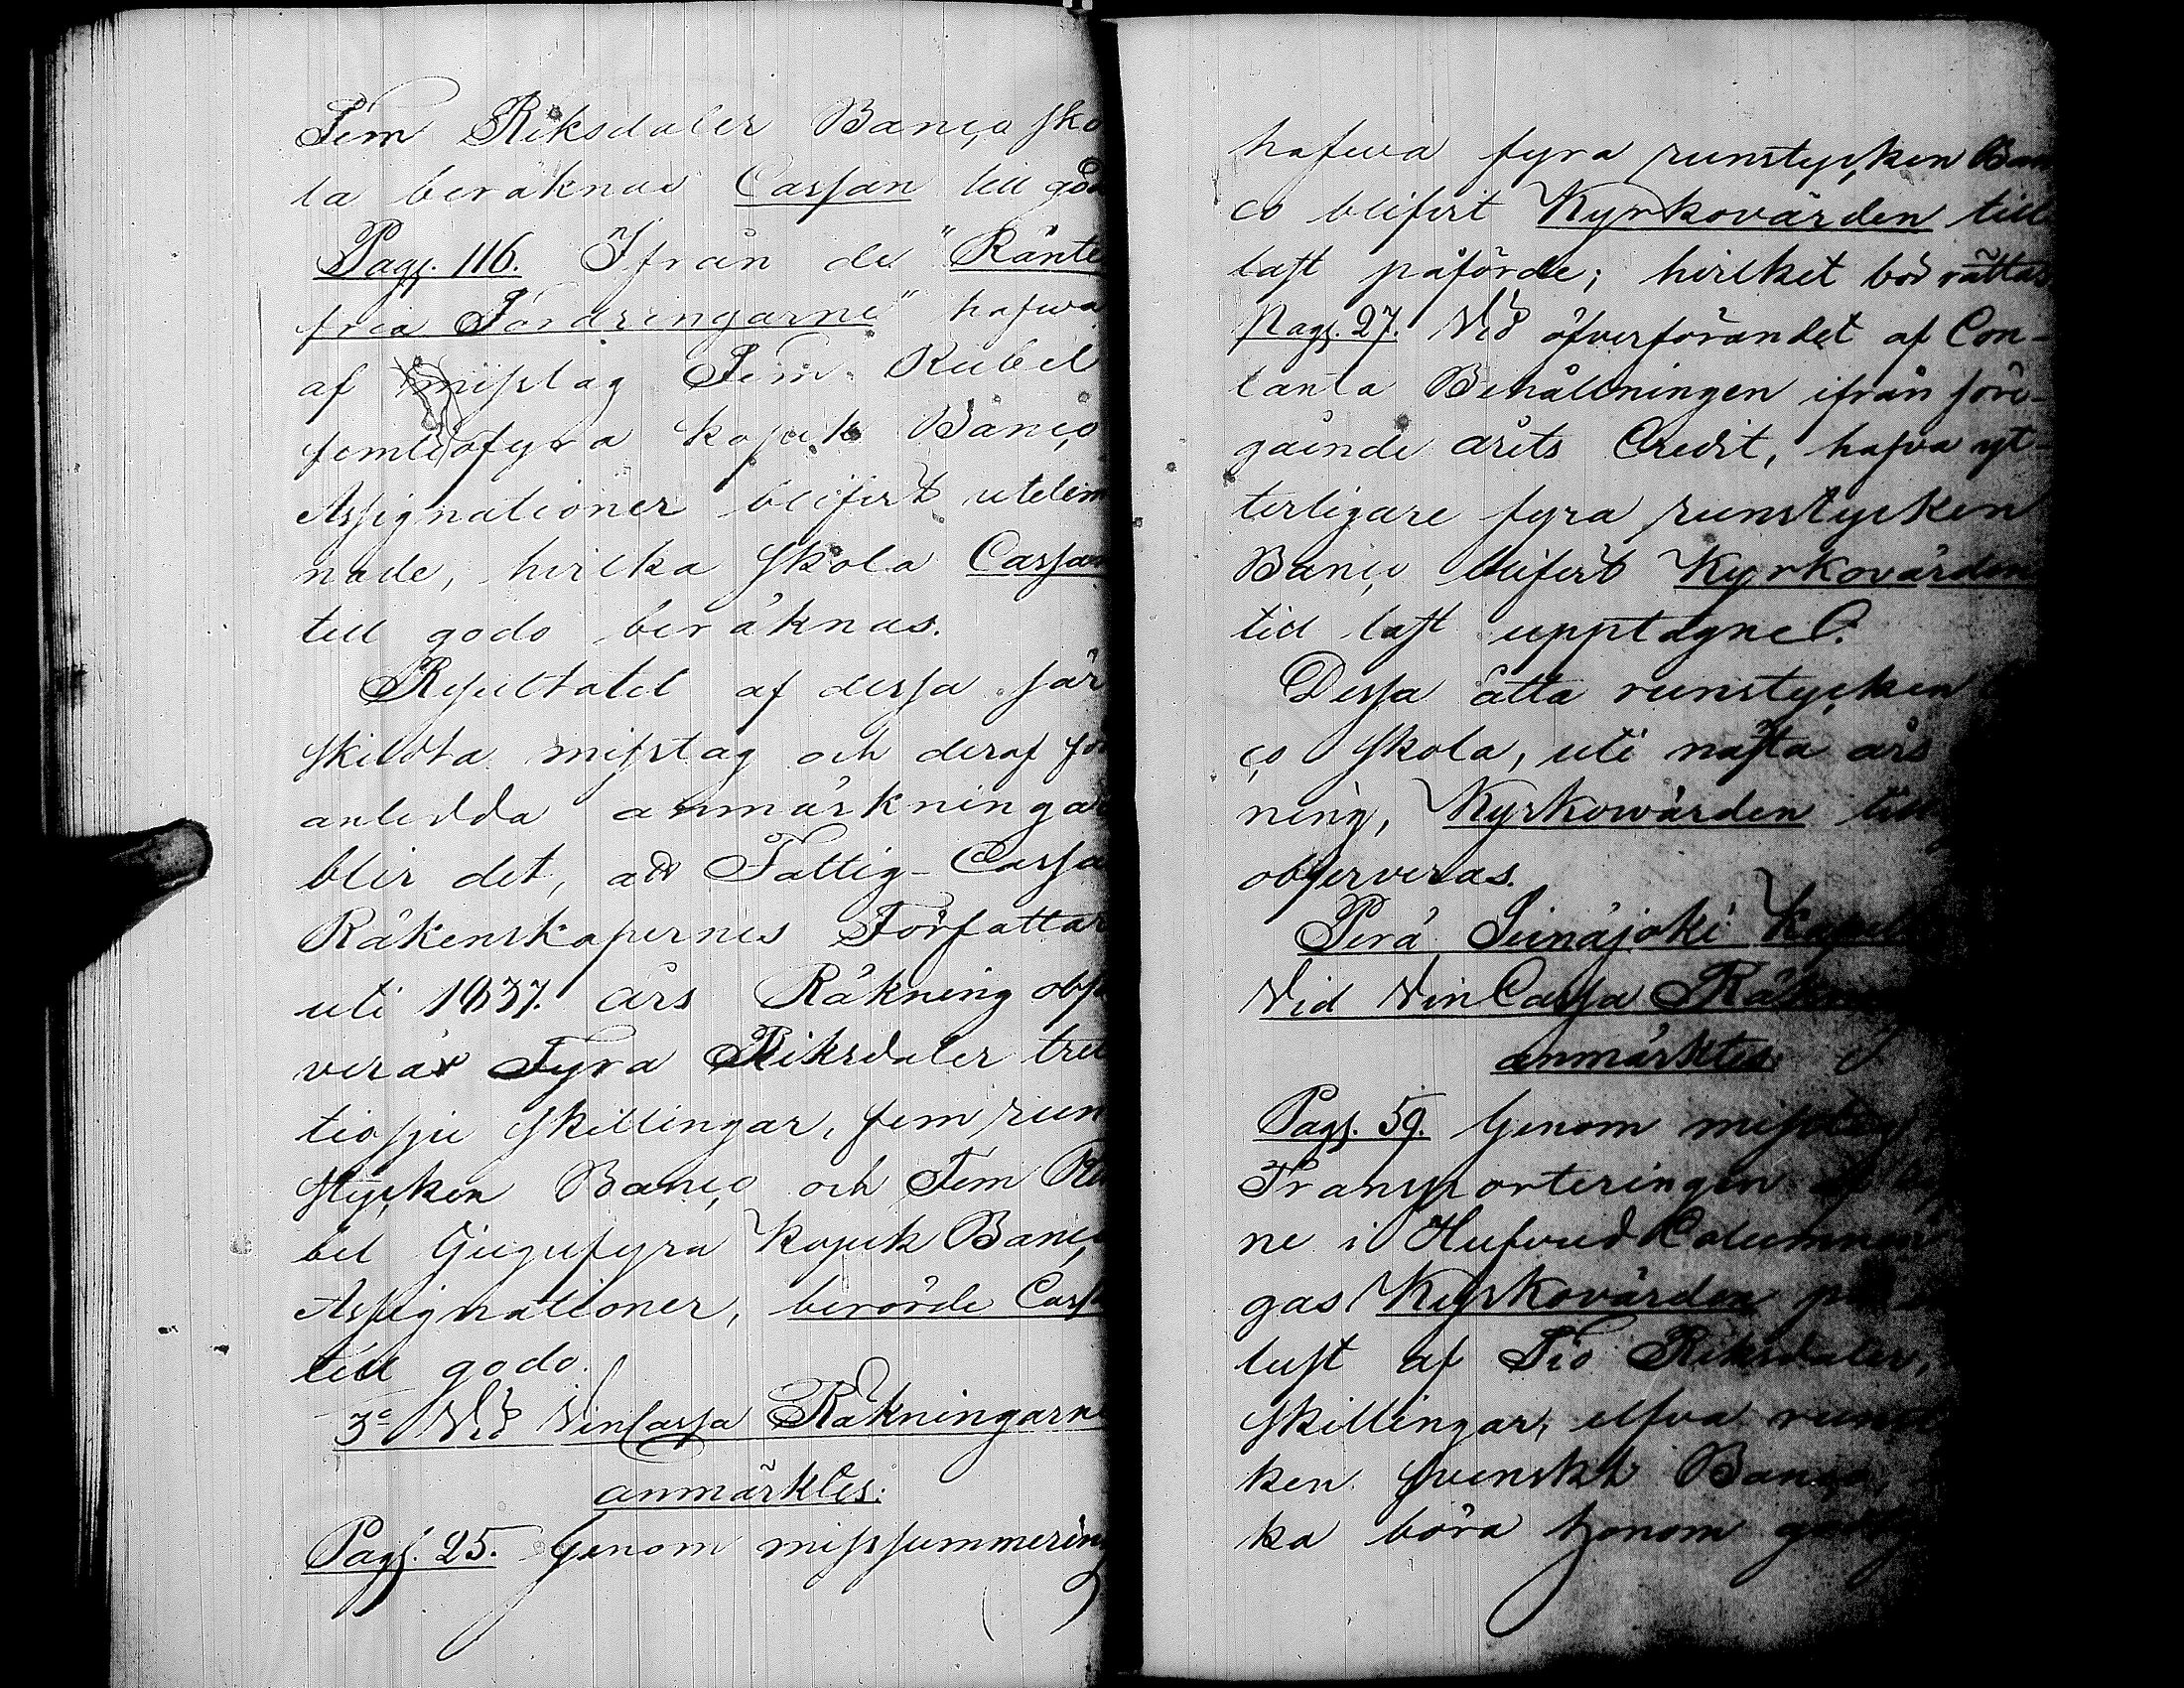 Fem Riksdaler Banco sko
la beräknas Cassan till god
Pag. 116. Ifrån de "Ränte
fria Fordringarne" hafwa
af misstag Fem Rubel
femtiofyra kopek Banco
Assignationer blifvit utelem
nade, hvilka skola Cassan
till godo beräknas.
Resultatet af dessa sär
skildta misstag och deraf för
anledda anmärkningar
blir det, att Fattig-Cassa
Räkenskapernes Författar
uti 1837. års Räkning obse
verar Fyra Riksdaler tret
tiosju skillingar, fem run
stycken Banco och Fem Ru
bel tjugufyra kopek Banco
Assignationer, berörde Cassa
till godo.
3o Vid VinCassa Räkningarne
anmärktes:
Pag. 25. Genom missummering
hafwa fyra runstycken Ban
co blifvit Kyrkovärden till
last påförde; hvilket bör rättas
Pag. 27. Vid öfverförandet af Con-
tanta Behållningen ifrån före-
gående årets Credit, hafva yt-
terligare fyra runstycken
Banco blifvit Kyrkovärden
till last upptagne.
Dessa åtta runstycken
co skola, uti nästa års
ning, Kyrkowärden till
observeras.
Perä Seinäjoki Kapell
Vid VinCassa Räkn
anmärktes:
Pag. 59. Genom misstag
Transporteringen af
ne i Hufvud Columnen
gas Kyrkovärden
lust af Tio Riksdaler,
skillingar, elfva runst
ken svenskt Banco,
ka böra honom godt